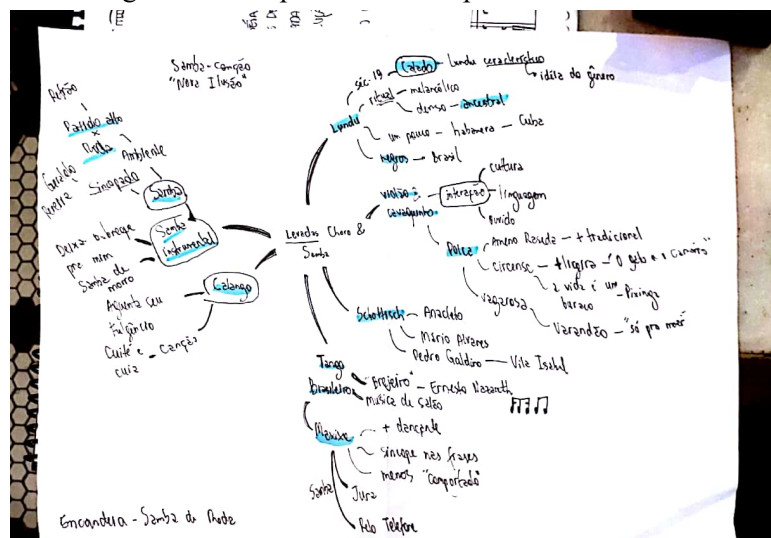 Samba-canção
"Nova Ilusão"
Refrão
Partido alto
x
Roda
Ambiente
Geraldo
Pereira
Sincopado
Samba
Deixa
pra mim
Samba de
morro
Samba
instrumental
Aguenta seu
Fulgêncio
Cuité e
cuia
Canção
Calango
Levadas Choro &
Samba
Lundu
séc. 19
Calado
Lundu característico
idéia do gênero
ritual
melancólico
denso
ancestral
um pouco
habanera
Cuba
negros
Brasil
violão e
cavaquinho
interação
cultura
linguagem
ouvido
Polca
Ameno Resedá
+ tradicional
circense
+ ligeira
"O gato e o canário"
a vida é um
buraco
Pixinga
vagarosa
Varandão
"só pra moer"
Schottisch
Anacleto
Mário Álvares
Pedro Galdino
Vila Isabel
Tango
Brasileiro
"Brejeiro"
Ernesto Nazareth
música de salão
Maxixe
+ dançante
síncope nas frases
menos "comportado"
Samba
Jura
Pelo Telefone
Encandeia - Samba de Roda